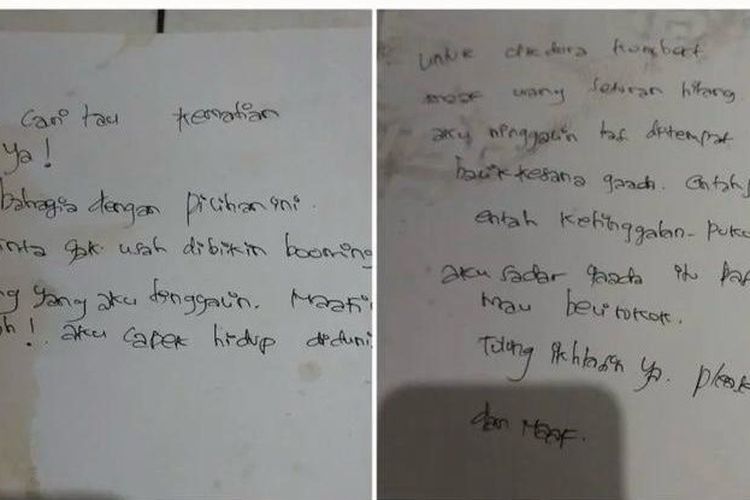 Cari tau kematian
ya!
bahagia dengan pilihan ini.
inta gak usah dibikin booming
ng yang aku tinggalin. Maafi
h! aku capek hidup diduni
untuk
maaf uang seluran hilang
aku ninggalin tas ditempat
balik kesana gaada. entah
entah ketinggalan. puku
aku sadar gaada itu pas
mau beli rokok.
Tolong ikhlasin ya. please
dan Maaf.